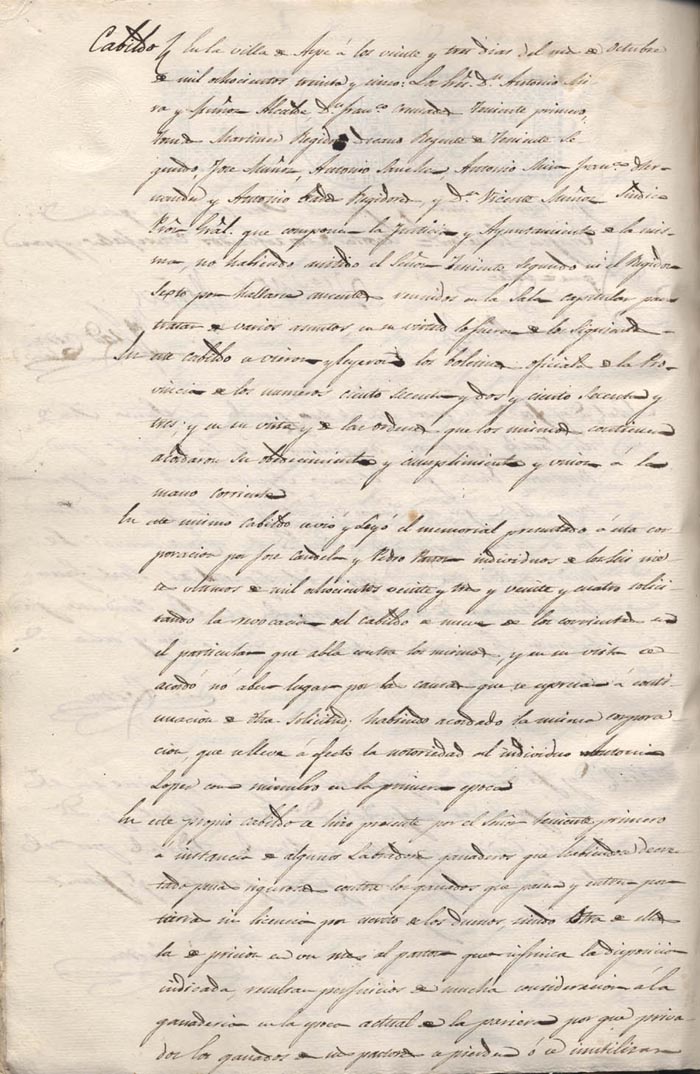 Cabildo En la villa de Aspe á los veinte y tres dias del mes de Octubre
de mil ochocientos treinta y cinco: Los Sres. Dn. Antonio Mi-
ra y Muñoz Alcalde, Dn. Franco. Teniente primero,
Martinez Regidor Decano Regente de Teniente Se-
gundo, José Muñoz, Antonio Sanchez, Antonio Mira, Franco. Her-
nandez y Antonio Regidores, y Dn. Vicente Muñoz Sindico
Pror. Gral. que componen la Justicia y Ayuntamiento de la mis-
ma, no habiendo asistido el Señor Teniente Segundo ni el Regidor
Sexto por hallarse ausentes reunidos en la Sala capitular para
tratar de varios asuntos en su virtud lo fueron de lo Siguiente
En este cabildo se vieron y leyeron los boletines oficiales de la Pro-
vincia de los numeros ciento sesenta y dos y ciento Sesenta y
tres; y en su vista y de las ordenes que los mismos contienen
acordaron su obedecimiento y cumplimiento y unión á la
mano corriente
En este mismo cabildo se vió y Leyó el memorial presentado á esta cor-
poracion por José Candela y Pedro Pastor individuos de los seis me-
ses ultimos de mil ochocientos veinte y tres y veinte y cuatro solici-
tando la revocacion del cabildo de nueve de los corrientes en
el particular que abla contra los mismos, y en su vista se
acordó nó aber lugar por las causas que se espresan á conti-
nuacion de dha Solicitud; habiendo acordado la misma corpora-
cion, que se lleve a efecto la notoriedad al individuo Antonio
Lopez como miembro en la primera epoca
En este propio cabildo se hizo presente por el Señor Teniente primero
á instancia de algunos Labradores ganaderos que habiendo decre-
tado penas rigurosas contra los ganados que pasen y entren por
tierra sin licencia por escrito de los dueños, siendo otra de ellas
la de prision en un mes al pastor que infrinca la disposicion
indicada, resultan perjuicios de mucha consideracion á la
ganaderia en la epoca actual de la paricera por que priva-
dos los ganados de sus pastores se pierden ó se inutilizan